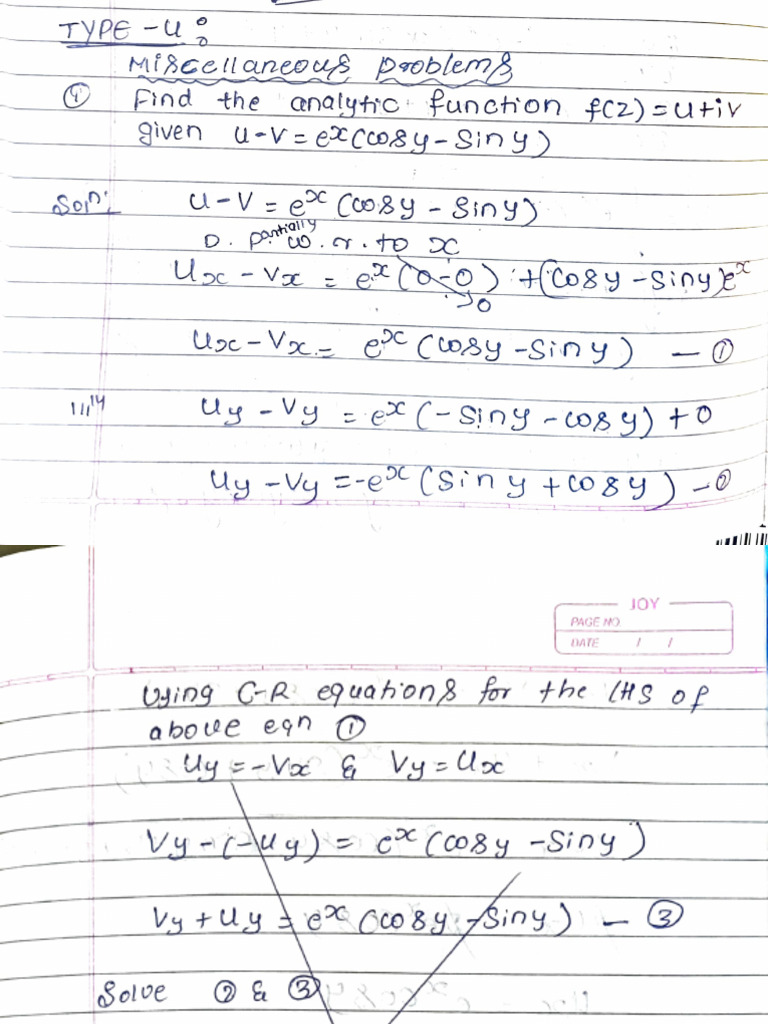 TYPE-4:
Miscellaneous problems
① Find the analytic function f(z)=u+iv
given u-v=e^x(cosy-siny)
Soln: u-v = e^x (cosy - siny)
D. partially w.r.to x
Ux - Vx = e^x (0-0) + (cosy - siny)e^x
→0
Ux - Vx = e^x (cosy - siny) — ①
|||ly Uy - Vy = e^x (-siny - cosy) + 0
Uy - Vy = -e^x (siny + cosy) - ②
JOY
PAGE NO.
DATE / /
Using C-R equations for the LHS of
above eqn ①
Uy = -Vx & Vy = Ux
Vy - (-Uy) = e^x (cosy - siny)
Vy + Uy = e^x (cosy - siny) — ③
Solve ② & ③